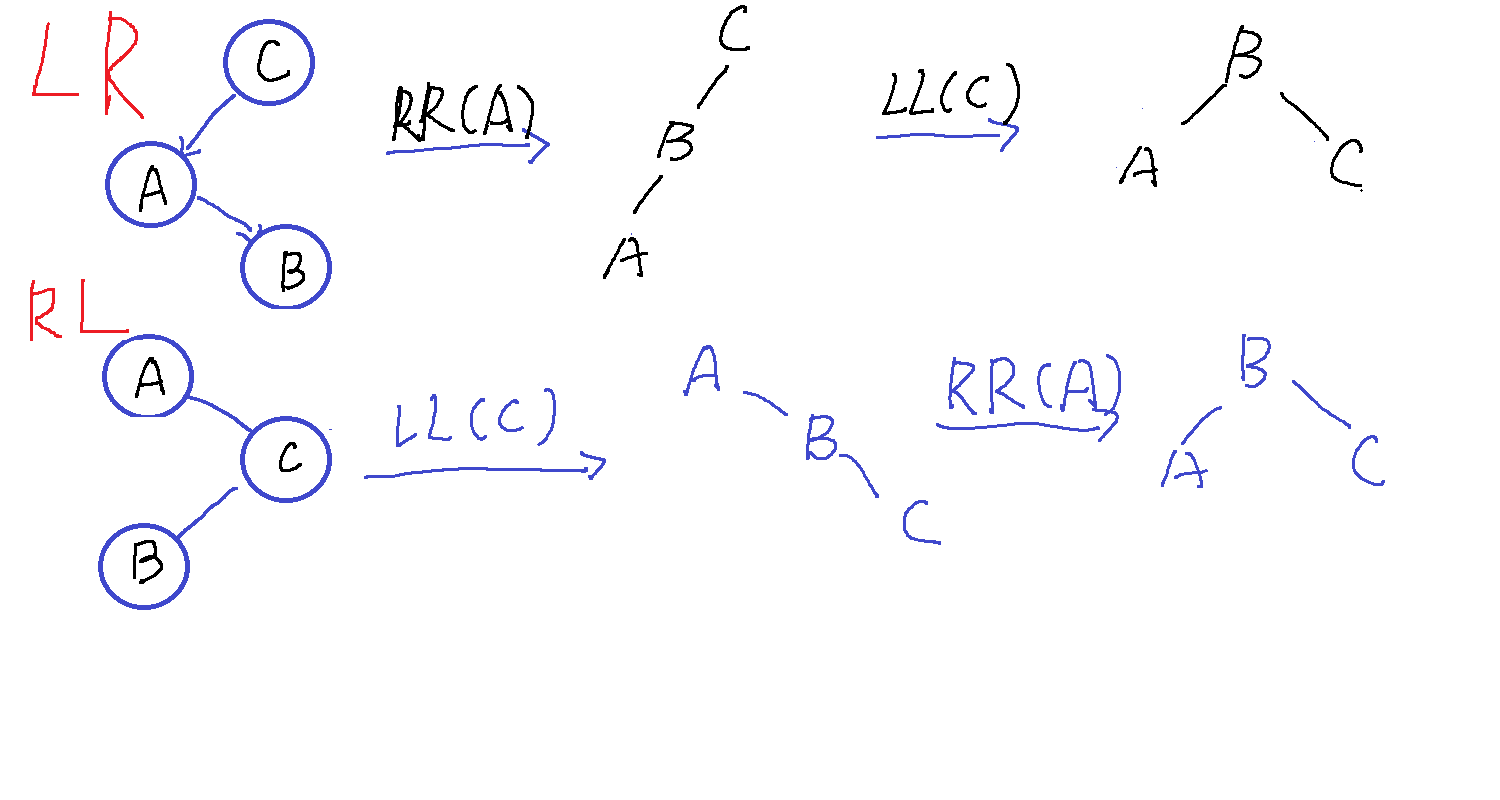 LR
C
A
B
RR(A)
C
B
A
LL(C)
B
A
C
RL
A
C
B
LL(C)
A
B
C
RR(A)
B
A
C